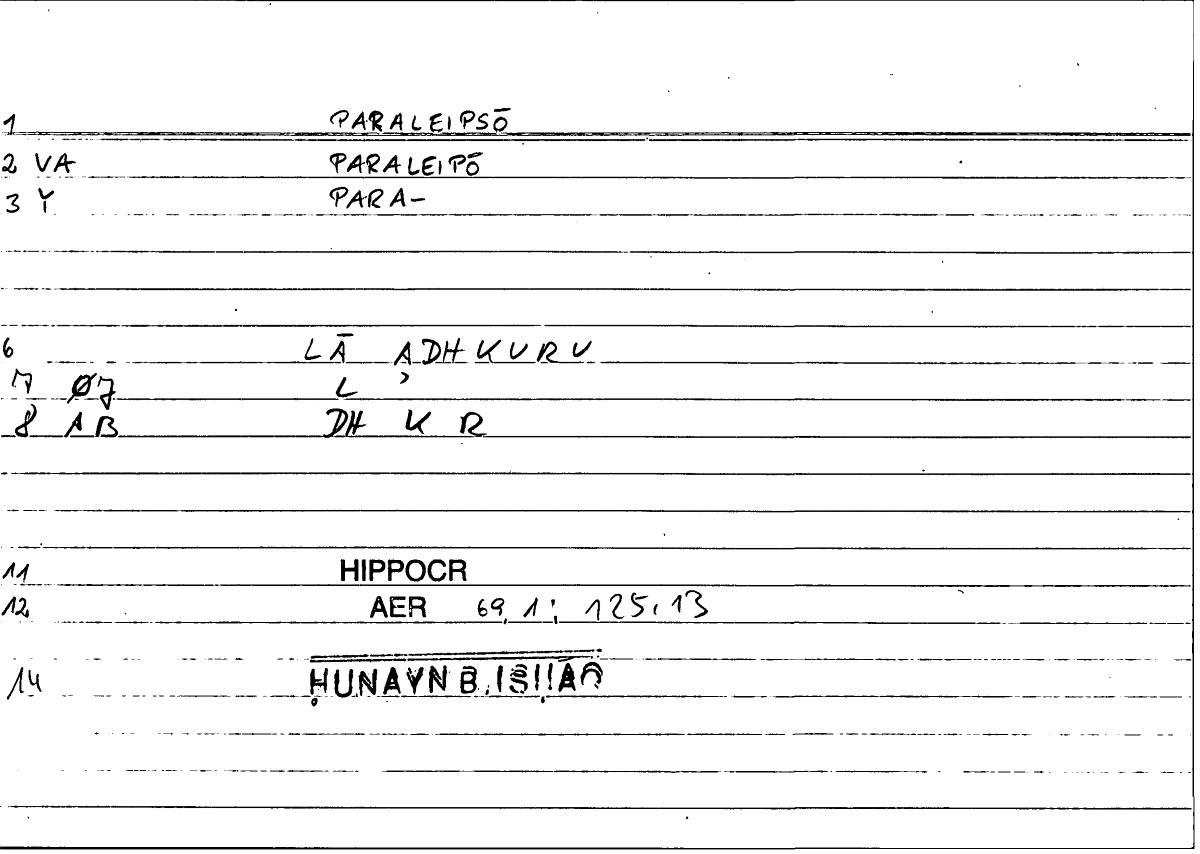 1 PARALEIPSŌ
2 VA PARALEIPŌ
3 Y PARA-
6 LĀ ADHKURU
7 ØJ L ʾ
8 AB DH K R
11 HIPPOCR
12 AER 69,1; 125,13
14 ḤUNAYN B. ISḤĀQ